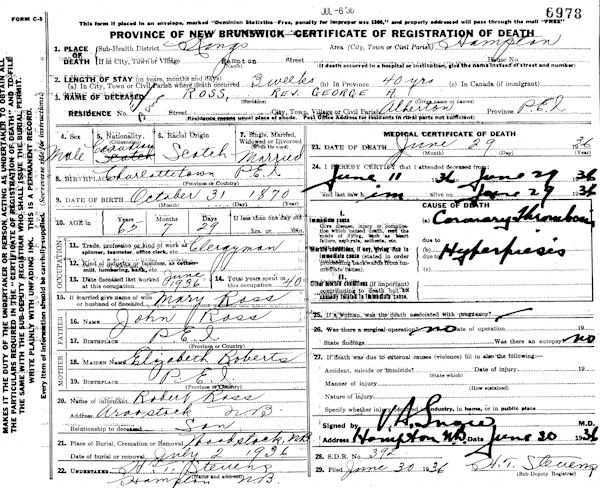 JUL - 6 '36
6978
FORM C-3
This form if placed in an envelope, marked "Dominion Statistics—Free, penalty for improper use $300," and properly addressed will pass through the mail "FREE"
PROVINCE OF NEW BRUNSWICK—CERTIFICATE OF REGISTRATION OF DEATH
MAKES IT THE DUTY OF THE UNDERTAKER OR PERSON ACTING AS UNDERTAKER TO OBTAIN ALL
THE PARTICULARS REQUIRED IN THE "CERTIFICATE OF REGISTRATION OF DEATH" AND TO FILE
THE SAME WITH THE SUB-DEPUTY REGISTRAR WHO SHALL ISSUE THE BURIAL PERMIT.
WRITE PLAINLY WITH UNFADING INK. THIS IS A PERMANENT RECORD.
Every item of information should be carefully supplied.
1. PLACE OF DEATH (Sub-Health District Kings Area (City, Town or Civil Parish) Hampton
If in City, Town or Village Hampton Street House No
(Name)
If death occurred in a hospital or institution, give the name instead of street and number)
2. LENGTH OF STAY (in years, months and days)
(a) In City, Town or Civil Parish where death occurred 3 weeks (b) In Province 40 yrs (c) In Canada (if immigrant)
3. NAME OF DECEASED ROSS, REV. GEORGE A.
(Surname) (Given name or names)
RESIDENCE No. Street City, Town, Village or Civil Parish Alberton P.E.I
Residence means usual place of abode. Post Office Address for residents in rural parts not sufficient)
4. Sex Male
5. Nationality (Citizenship) Canadian Scotch
6. Racial Origin Scotch
7. Single, Married, Widowed or Divorced (Write the word) Married
8. BIRTHPLACE Charlottetown P.E.I
(Province or Country)
9. DATE OF BIRTH October 31 1870
(Month) (Day) (Year)
10. AGE in Years 65 Months 7 Days 29 If less than one day hrs. or min.
OCCUPATION
11. Trade, profession or kind of work as spinner, teamster, office clerk, etc. Clergyman
12. Kind of industry or business, as cotton mill, lumbering, bank, etc.
13. Date deceased last worked at this occupation June 1936
14. Total years spent in this occupation 40
15. If married give name of wife or husband of deceased Mary Ross
FATHER
16. NAME John Ross
17. BIRTHPLACE P.E.I
(Province or Country)
MOTHER
18. MAIDEN NAME Elizabeth Roberts
19. BIRTHPLACE P.E.I
(Province or Country)
20. Name of informant Robert Ross
Address Aroostook NB
Relationship to deceased Son
21. Place of Burial, Cremation or Removal Woodstock, NB
Date of Burial July 2 1936
22. UNDERTAKER H. T. Stevens
Hampton NB
(Name and address)
MEDICAL CERTIFICATE OF DEATH
23. DATE OF DEATH June 29 1936
(Month) (Day) (Year)
24. I HEREBY CERTIFY that I attended deceased from
June 11 1936 to June 29 1936
and last saw him alive on June 29 1936
CAUSE OF DEATH
Immediate cause
Give disease, injury or complication which caused death, not the mode of dying, such as heart failure, asphyxia, asthenia, etc.
(a) Coronary Thrombosis
due to
Morbid conditions, if any, giving rise to immediate cause (stated in order proceeding backwards from immediate cause)
(b) Hyperpiesis
due to
(c)
II.
Other morbid conditions (if important) contributing to death but not causally related to immediate cause.
25. If a woman, was the death associated with pregnancy?
26. Was there a surgical operation? no Date of operation 19
State findings Was there an autopsy no
27. If death was due to external causes (violence) fill in also the following:—
Accident, suicide or homicide? Date of injury 19
(State which)
Manner of injury
(How sustained)
Nature of injury
Specify whether injury occurred in industry, in home, or in public place
Signed by M.D.
Address Hampton NB Date June 30 1936
28. S.D.R. No. 392
29. Filed June 30 1936 H. T. Stevens
(Sub-Deputy Registrar)